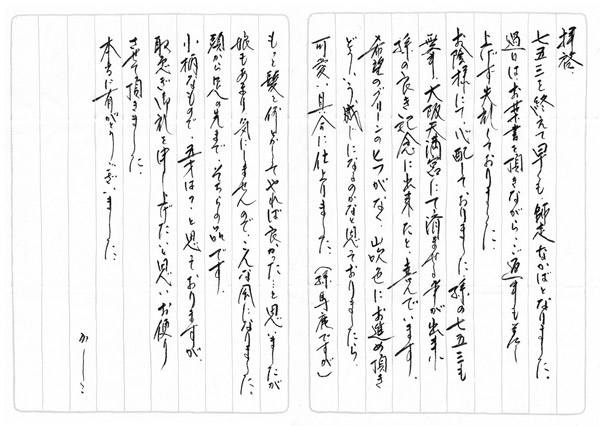 拝啓
七五三を終えて早くも師走なかばとなりました。
過日はお葉書を頂きながら、ご返事も差し
上げず失礼しておりました。
お陰様にて心配しておりました孫の七五三も
無事、大阪天満宮にて済ませる事が出来
孫の良き記念に出来たと喜んでいます。
希望のグリーンのヒワがなく、山吹色にお進め頂き
どういう感じになるのかなと思っておりましたら、
可愛い具合に仕上りました。(孫馬鹿ですが)
もっと髪を何とかしてやれば良かった…と思いましたが
娘もあまり気にしませんので、こんな風になりました。
頭から足の先まで、そちらの品です。
小柄なもので、五才は?と思っておりますが、
取急ぎ御礼を申し上げたいと思い、お便り
させて頂きました。
本当に有がとうございました。
かしこ